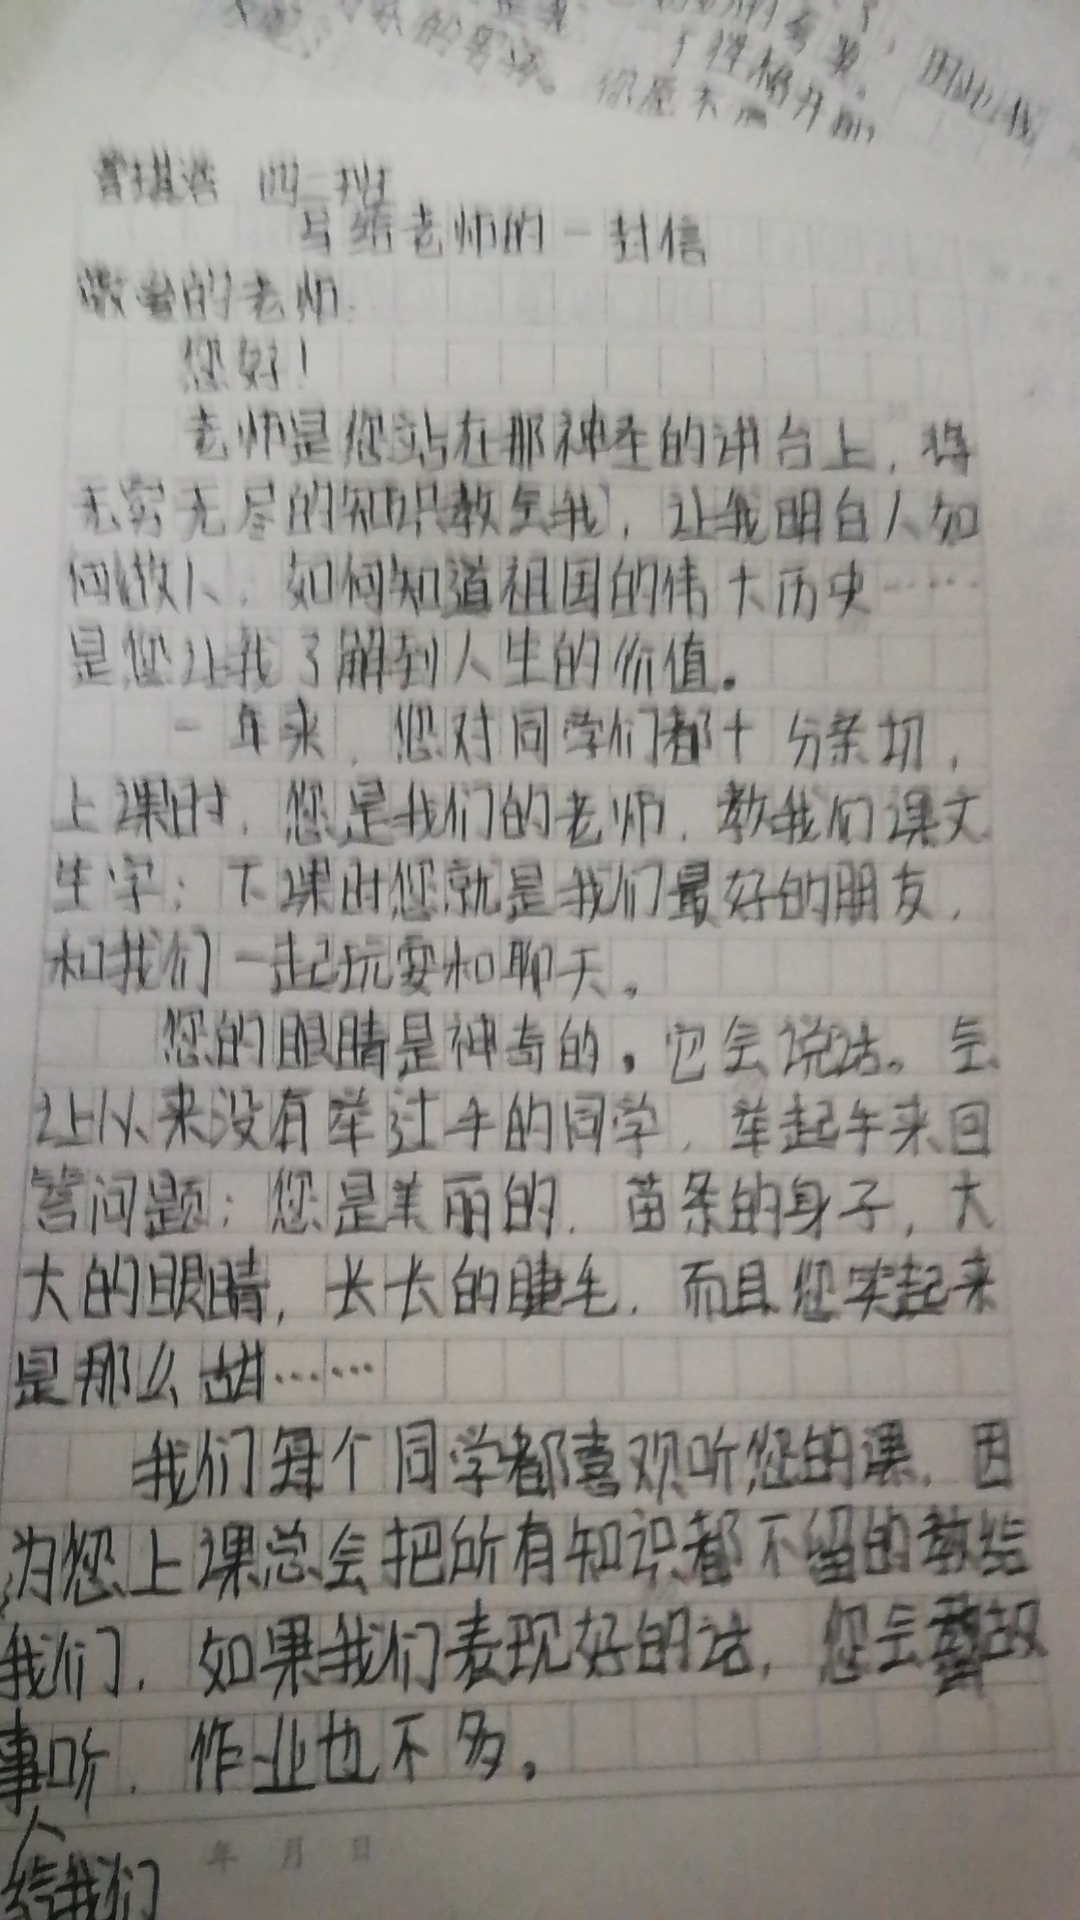 的
四二班
写给老师的一封信
敬爱的老师:
您好!
老师是您站在那神圣的讲台上,将
无穷无尽的知识教会我,让我明白人如
何做人,如何知道祖国的伟大历史……
是您让我了解到人生的价值。
一年来,您对同学们都十分亲切,
上课时,您是我们的老师,教我们课文
生字;下课时您就是我们最好的朋友,
和我们一起玩耍和聊天。
您的眼睛是神奇的,它会说话。会
让从来没有举过手的同学,举起手来回
答问题;您是美丽的,苗条的身子,大
大的眼睛,长长的睫毛,而且您笑起来
是那么甜……
我们每个同学都喜观听您的课,因
为您上课总会把所有知识都不留的教给
我们,如果我们表现好的话,您会故
事听,作业也不多。
给我们
年 月 日